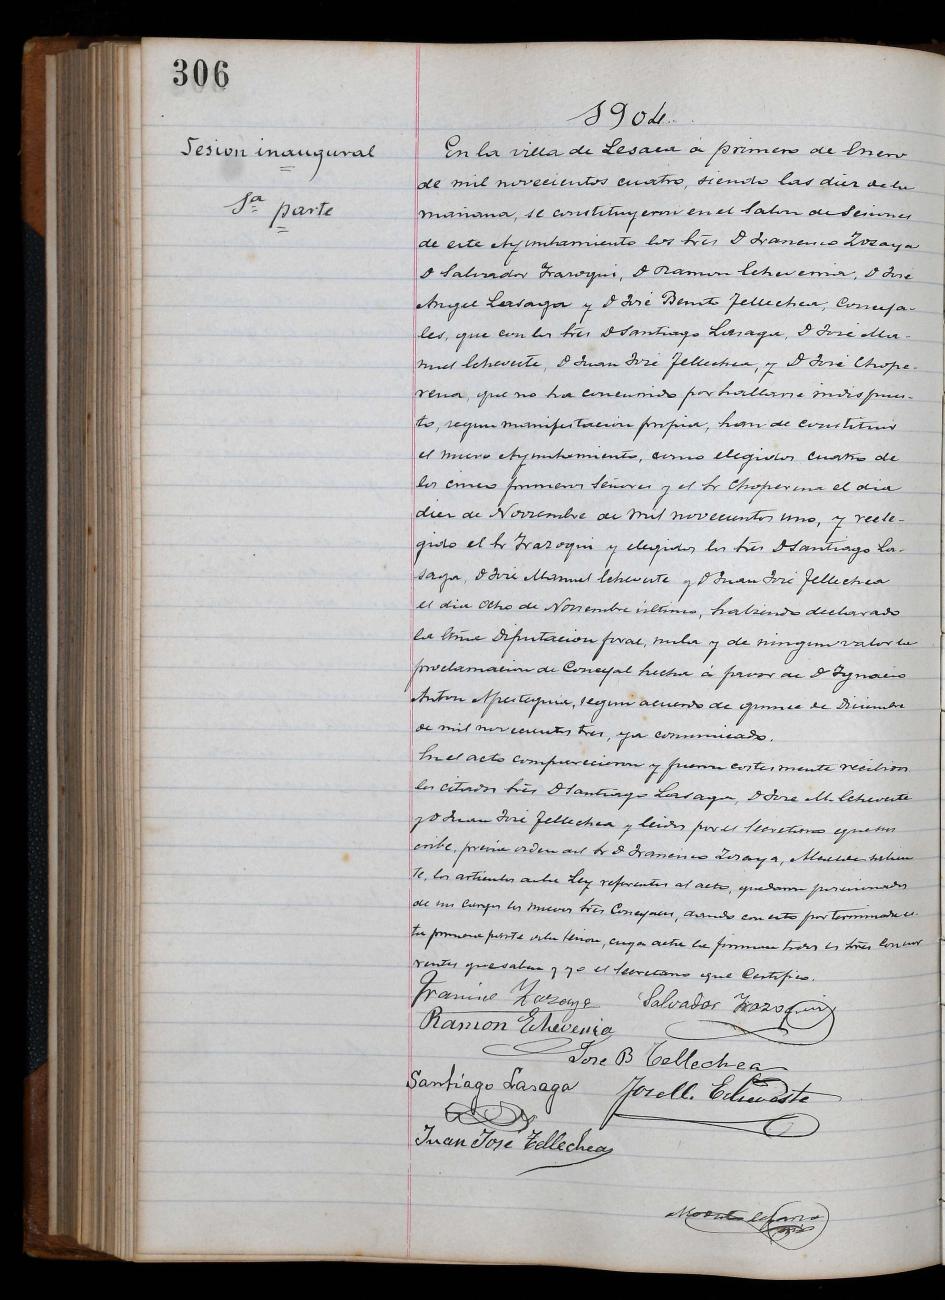 306
1904.
Sesion inaugural
1ª parte
En la villa de Lesaca á primero de Enero
de mil novecientos cuatro, siendo las diez de la
mañana, se constituyeron en el Salon de Sesiones
de este Ayuntamiento los Sres D Francisco Zozaya
D Salvador Irazoqui, D Ramon Echeverria, D José
Angel Lasaga y D José Benito Tellechea, Conceja-
les, que con los Sres D Santiago Lasaga, D José Ma-
nuel Echeveste, D Juan José Tellechea, y D José Chope-
rena, que no ha concurrido por hallarse indispues-
to, segun manifestacion propia, han de constituir
el nuevo Ayuntamiento, como elegidos cuatro de
los cinco primeros Señores y el Sr Choperena el dia
diez de Noviembre de mil novecientos uno, y reele-
gido el Sr Irazoqui y elegidos los Sres D Santiago La-
saga, D José Manuel Echeveste y D Juan José Tellechea
el dia ocho de Noviembre último, habiendo declarado
la Excma Diputacion foral, nula y de ningun valor la
proclamacion de Concejal hecha á favor de D Ignacio
Anton Apesteguia, segun acuerdo de quince de Diciembre
de mil novecientos tres, ya comunicado.
En el acto comparecieron y fueron cortesmente recibidos
los citados Sres D Santiago Lasaga, D José M. Echeveste
y D Juan José Tellechea y leidos por el Secretario que sus
cribe, previa orden del Sr D Francisco Zozaya, Alcalde salien
te, los articulos de la Ley referentes al acto, quedaron posesionados
de sus cargos los nuevos Sres Concejales, dando con esto por terminada es-
ta primera parte de la sesion, cuya acta la firman todos los Sres concur
rentes que saben y yo el Secretario que Certifico.
Francisco Zozaya Salvador Irazoqui
Ramon Echeverria
Jose B Tellechea
Santiago Lasaga José M. Echeveste
Juan José Tellechea